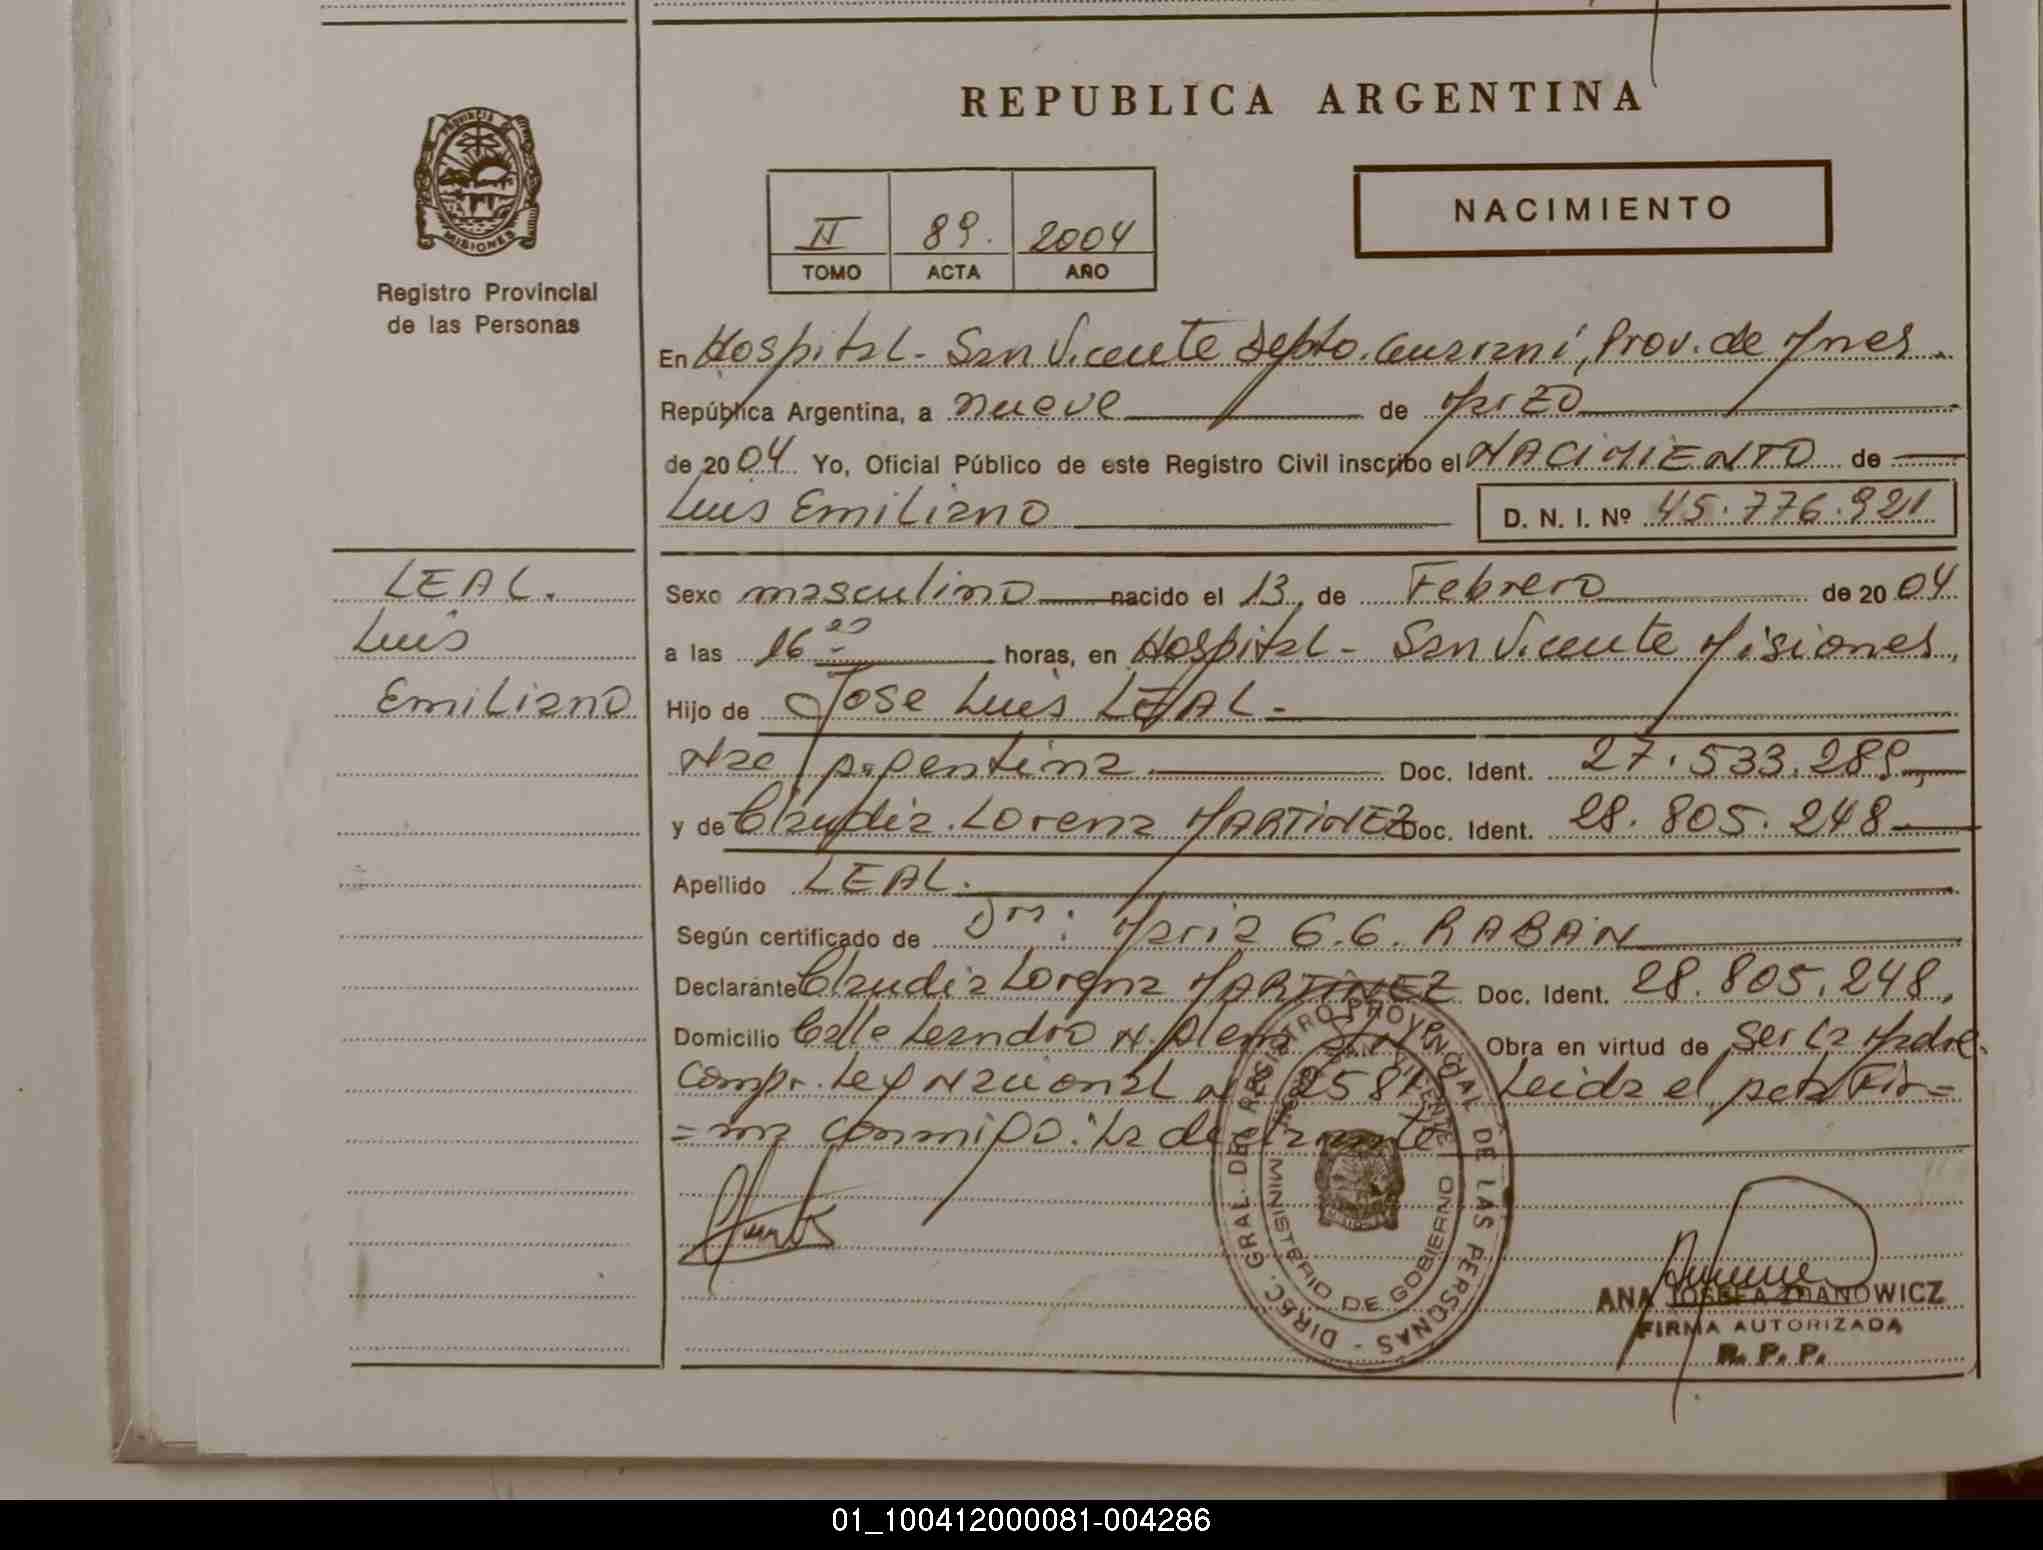 REPUBLICA ARGENTINA
PROVINCIA DE
MISIONES
Registro Provincial
de las Personas
II 89. 2004
TOMO ACTA AÑO
NACIMIENTO
En Hospital - San Vicente Depto. Guaraní, Prov. de Mnes.
República Argentina, a nueve de Marzo
de 2004 Yo, Oficial Público de este Registro Civil inscribo el NACIMIENTO de
Luis Emiliano D. N. I. Nº 45.776.921
LEAL.
Luis
Emiliano
Sexo masculino nacido el 13 de Febrero de 2004
a las 16 horas, en Hospital - San Vicente Misiones,
Hijo de Jose Luis LEAL -
Nac Argentina Doc. Ident. 27.533.289,
y de Claudia Lorena MARTINEZ Doc. Ident. 28.805.248
Apellido LEAL.
Según certificado de Dra: Maria G.G. RABAIN
Declarante Claudia Lorena MARTINEZ Doc. Ident. 28.805.248,
Domicilio Calle Leandro N. Alem Obra en virtud de ser la Madre.
Compr. Ley Nacional Leida el acta Fir=
=ma conmigo. La declarante
DIREC. GRAL. DEL REGISTRO PROVINCIAL DE LAS PERSONAS -
MINISTERIO DE GOBIERNO
ANA JOSEFA ZDANOWICZ
FIRMA AUTORIZADA
R. P. P.
01_100412000081-004286